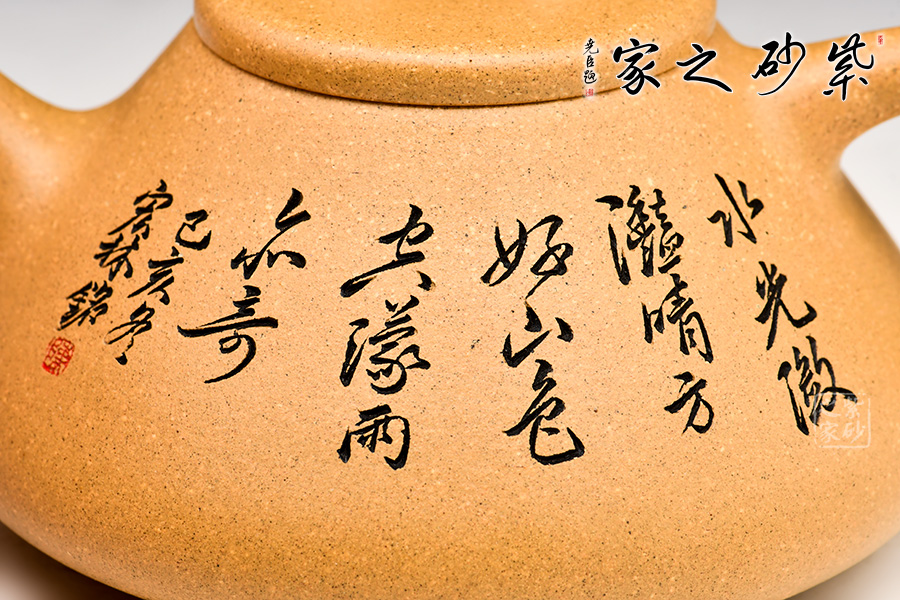 紫砂之家
堯臣題
水光瀲
灩晴方
好山色
空濛雨
亦奇
己亥冬
林銘
紫砂之家